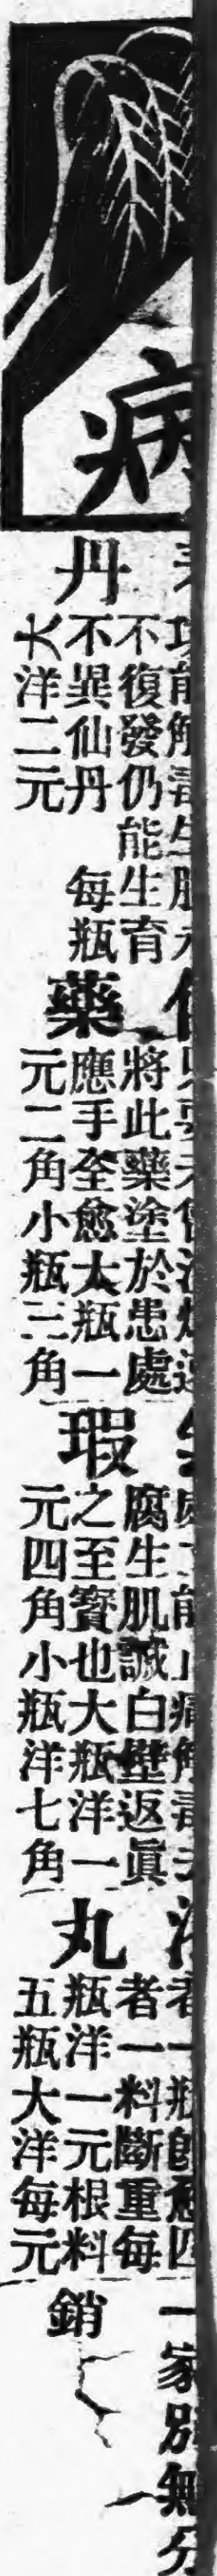 病
丹
不復發仍能生育
不異仙丹 每瓶
大洋二元
藥
將此藥塗於患處
應手全愈大瓶一
元二角小瓶三角
瑕
腐生肌誠白璧返眞
之至寳也大瓶洋一
元四角小瓶洋七角
丸
者一瓶卽愈四
者一料斷重每
瓶洋一元根料
五瓶大洋每元
一家別無分
銷